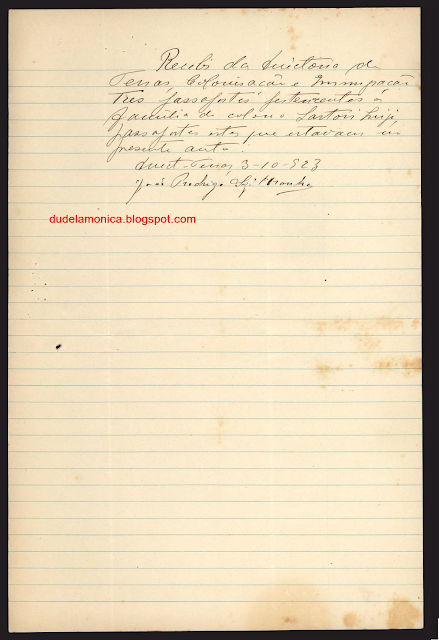 Recebi da Directoria de
Terras Colonisação e Immigração
tres passaportes pertencentes á
familia do colono Sartori Luigi,
passaportes estes que estavam no
presente auto.
Direct. Terras 3-10-923
João Rodrigo
dudelamonica.blogspot.com